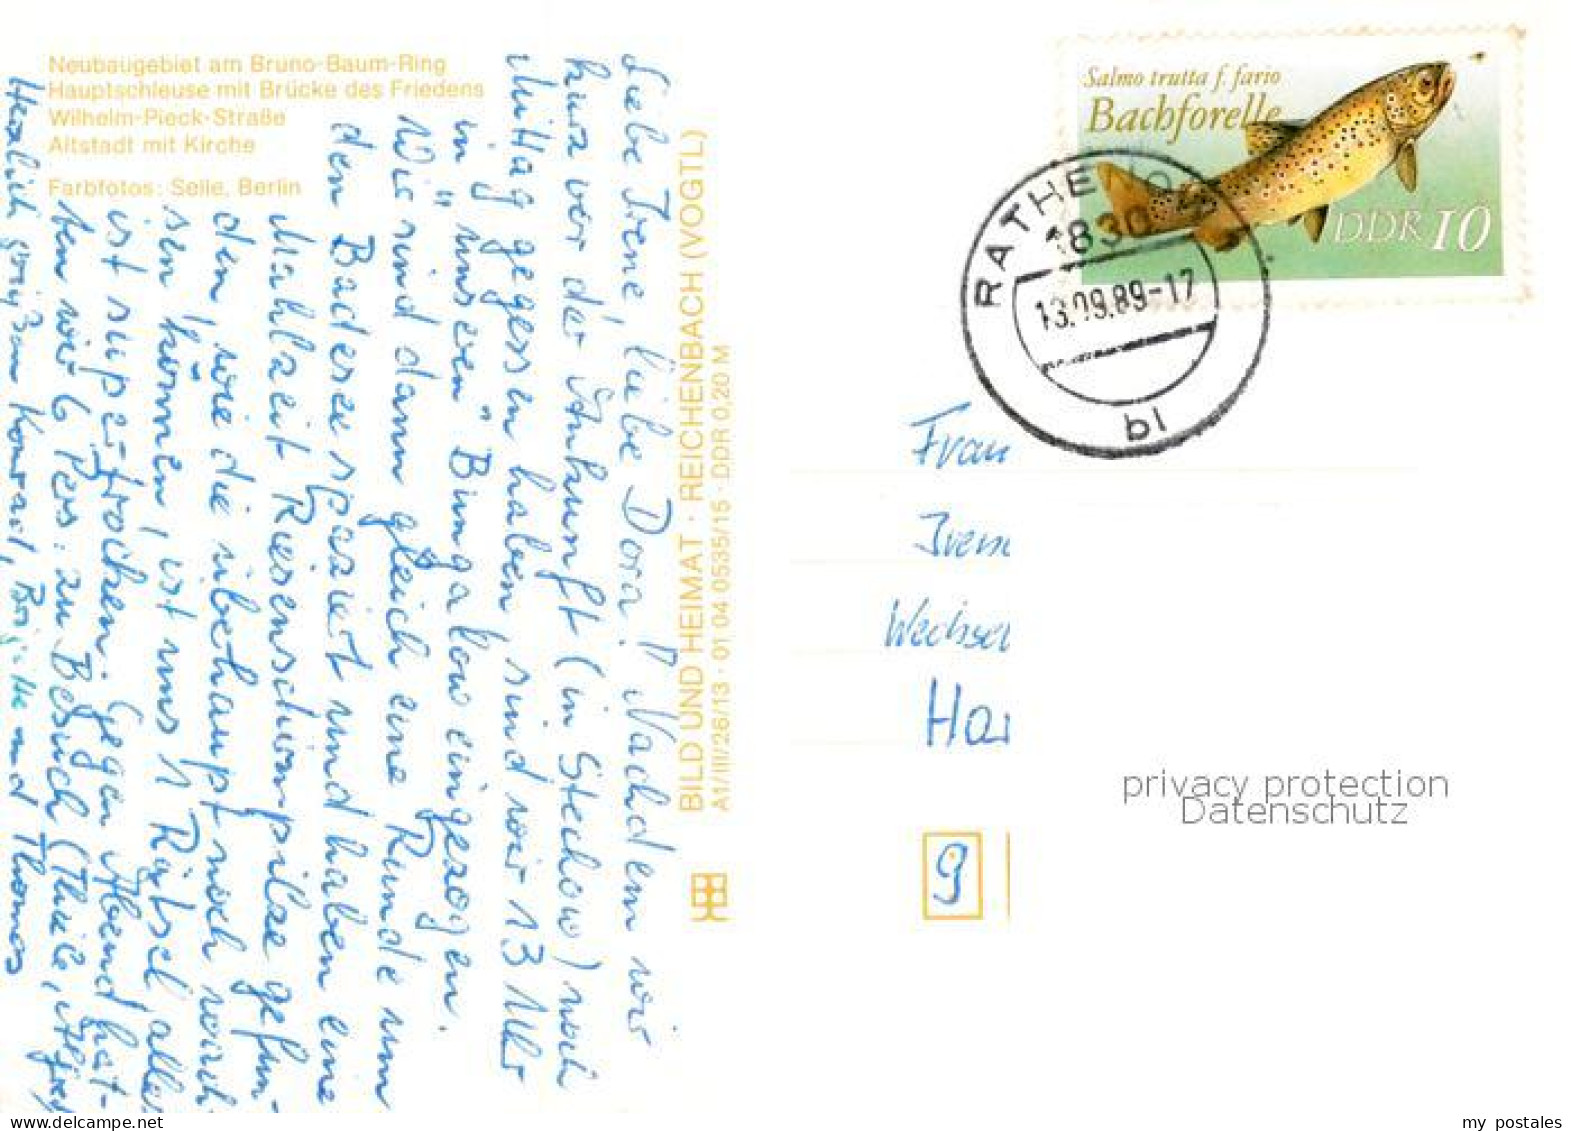 Neubaugebiet am Bruno-Baum-Ring
Hauptschleuse mit Brücke des Friedens
Wilhelm-Pieck-Straße
Altstadt mit Kirche
Farbfotos: Selle, Berlin
Liebe Irene, liebe Dora! Nachdem wir
kurz vor der Ankunft (in Stechow) noch
Mittag gegessen haben, sind wir 13 Uhr
in "unseren" Bungalow eingezogen.
Wir sind dann gleich eine Runde um
den Badesee spaziert und haben eine
Mahlzeit Riesenschirmpilze gefun-
den, wie die überhaupt noch wach-
sen können, ist uns 1 Rätsel, alles
ist super-trocken. Gegen Abend hat-
ten wir 6 Pers. zu Besuch (Thiele,
Herzlich grüßen Konrad, Brigitte und Thomas
BILD UND HEIMAT · REICHENBACH (VOGTL)
A1/III/26/13 · 01 04 0535/15 · DDR 0,20 M
Salmo trutta f. fario
Bachforelle
DDR 10
RATHENOW
1830
13.09.89-17
bl
Frau
Iren
Wechsel
Har
9
privacy protection
Datenschutz
my postales